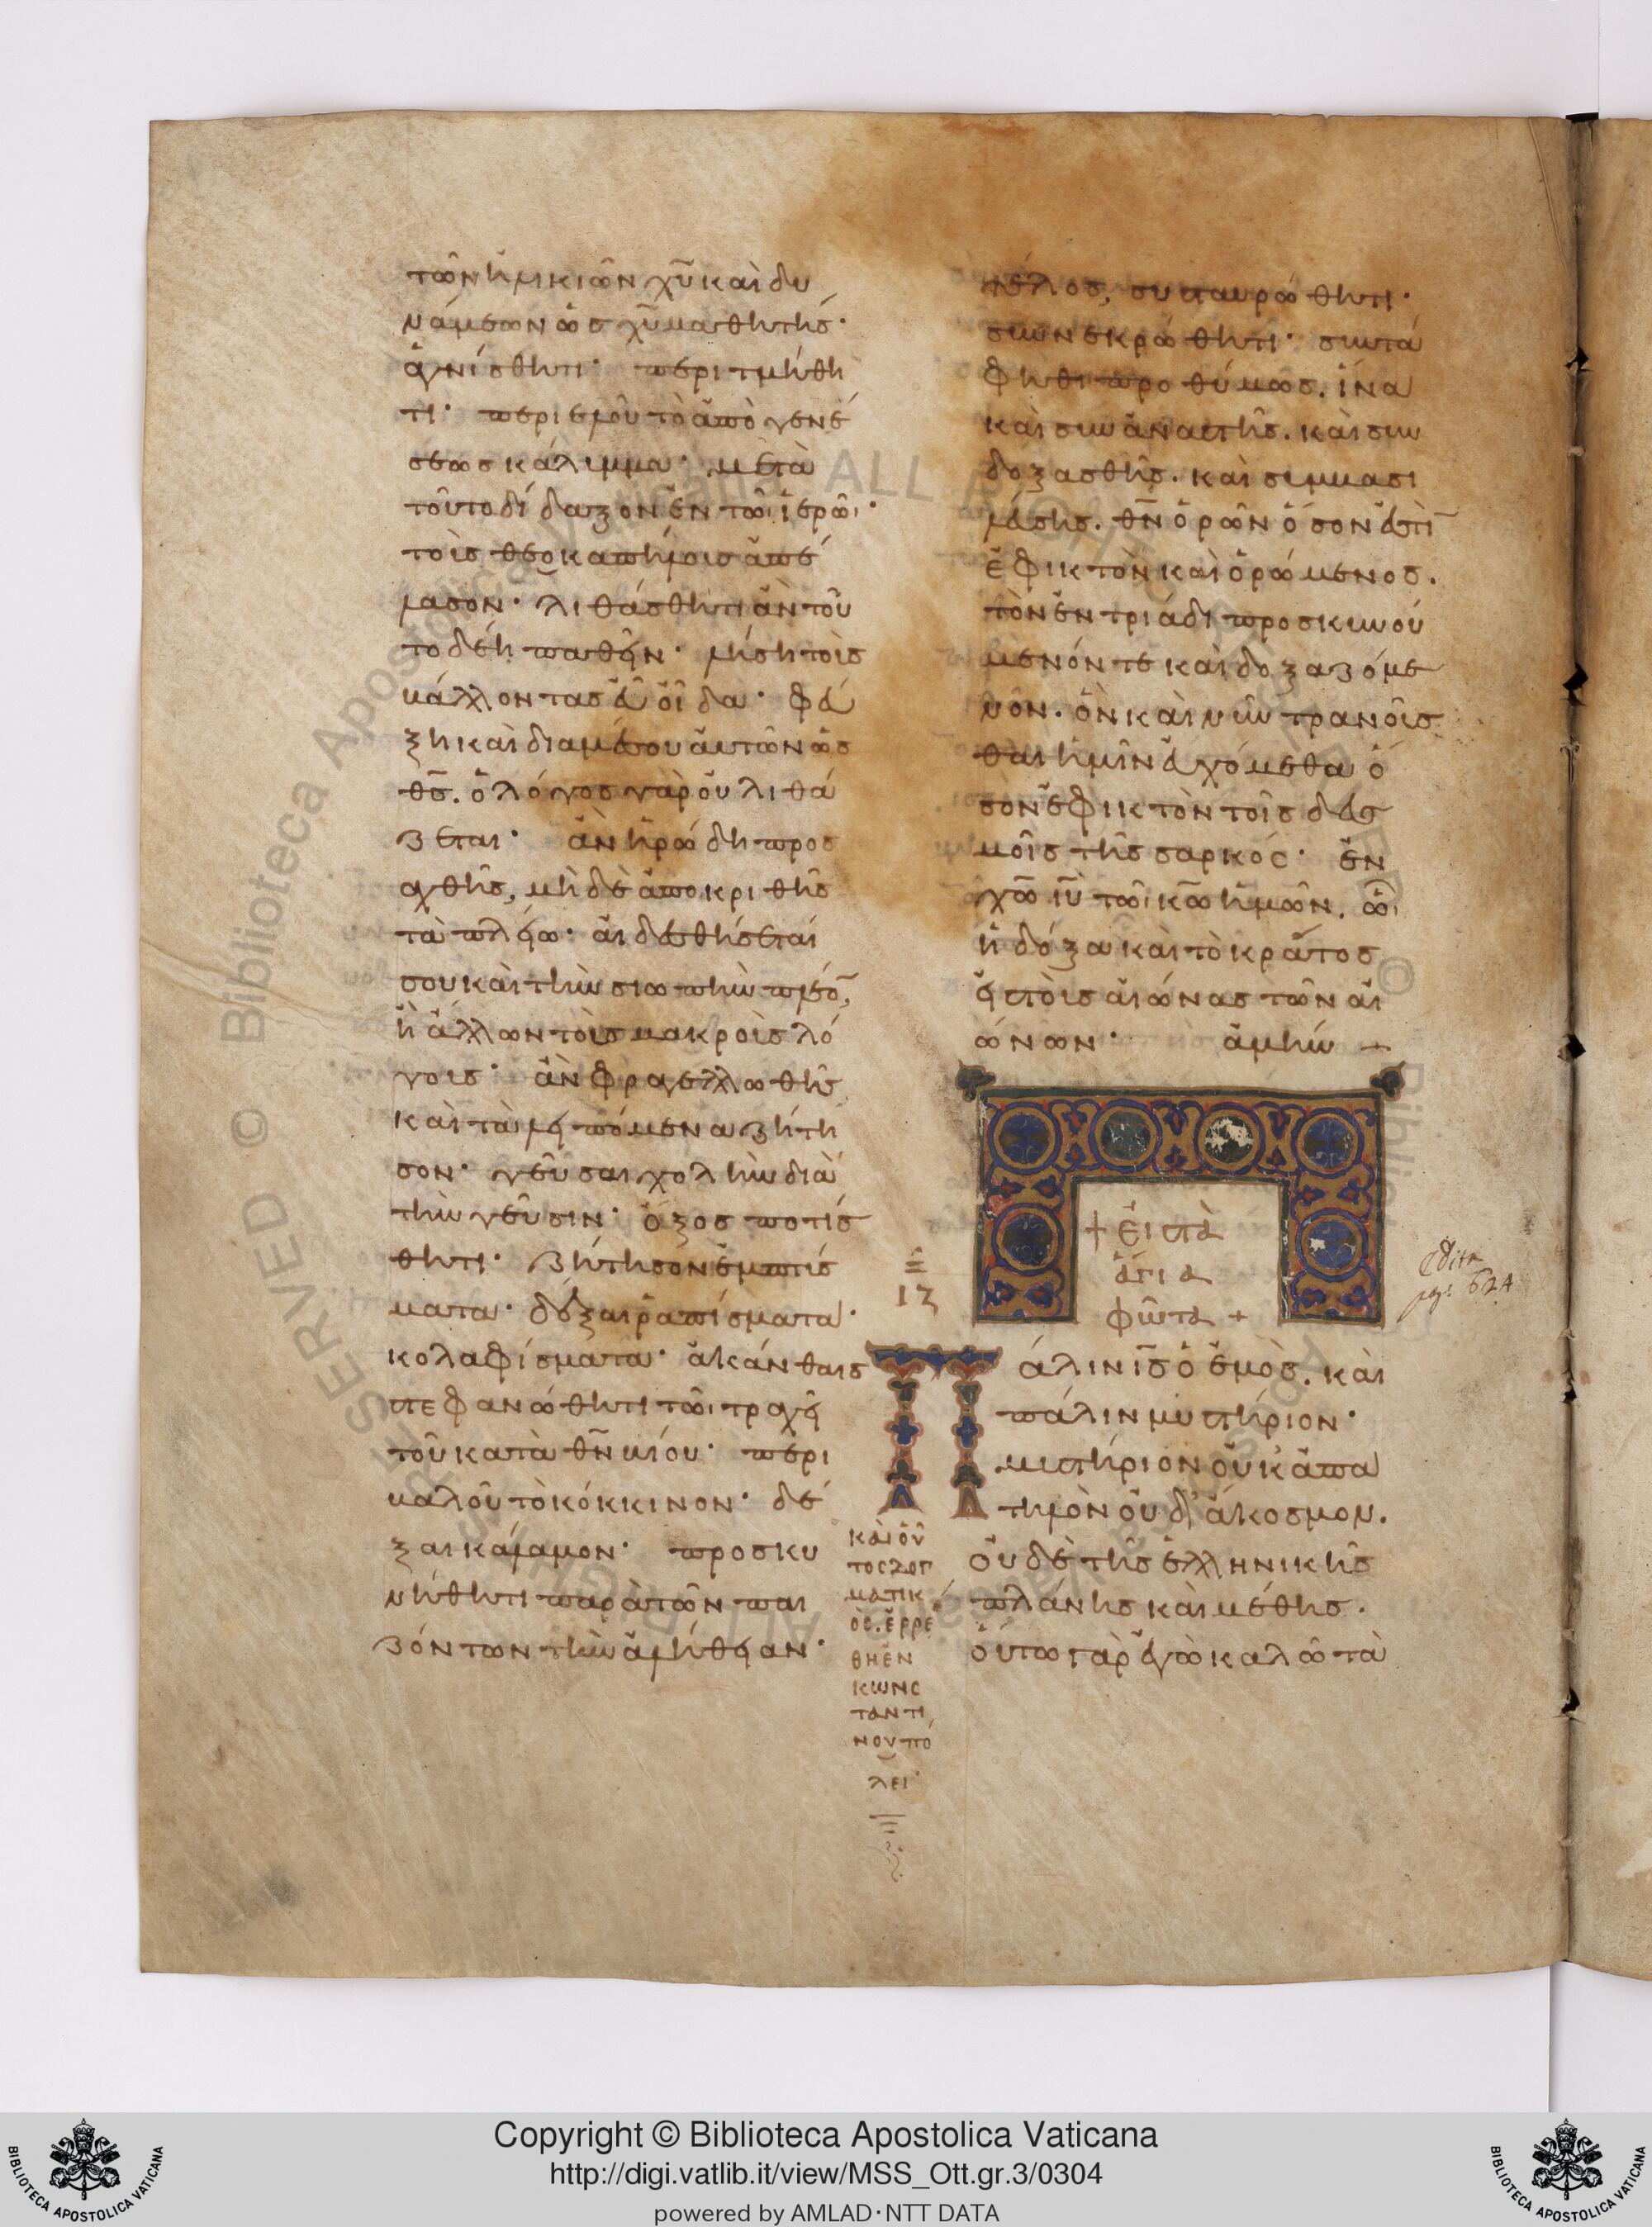 τῶν ἡλικιῶν χ̅υ̅ καὶ δυ
νάμεων ὡς χ̅υ̅ μαθητής·
ἁγνίσθητι· περιτμήθη
τι· περιελοῦ τὸ ἀπὸ γενέ
σεως κάλυμμα· μετὰ
τοῦτο δίδαξον ἐν τῶι ἱερῶι·
τοὺς θεοκαπήλους ἀπέ
λασον· λιθάσθητι ἂν τοῦ
το δέη παθεῖν· λήση τοὺς
βάλλοντας εὖ οἶδα· φεύ
ξη καὶ διαμέσου αὐτῶν ὡς
θ̅ς̅. ὁ λόγος γὰρ οὐ λιθά
ζεται· ἂν ἡρώδη προσ
αχθῆς, μὴ δὲ ἀποκριθῆς
τὰ πλείω· αἰδεσθήσεταί
σου καὶ τὴν σιωπὴν πλέο̅,
ἢ ἄλλων τοὺς μακροὺς λό
γους· ἂν φραγελλωθῆς
καὶ τὰ λειπόμενα ζήτη
σον· γεῦσαι χολὴν διὰ
τὴν γεῦσιν· ὄξος ποτίσ
θητι· ζήτησον ἐμπτύσ
ματα· δέξαι ῥαπίσματα·
κολαφίσματα· ἀκάνθαις
στεφανώθητι τῶι τραχεῖ
τοῦ κατὰ θ̅ν̅ βίου· περι
βαλοῦ τὸ κόκκινον· δέ
ξαι κάλαμον· προσκυ
νήθητι παρὰ τῶν παι
ζόντων τὴν ἀλήθειαν·
τέλος, συσταυρώθητι·
συννεκρώθητι· συντά
φηθι προθύμως. ἵνα
καὶ συναναστῆς. καὶ συν
δοξασθῆς. καὶ συμβασι
λεύσης. θ̅ν̅ ὁρῶν ὅσον ἐστὶ̅
ἐφικτὸν καὶ ὁρώμενος.
τὸν ἐν τριάδι προσκυνού
μενόν τε καὶ δοξαζόμε
νον. ὃν καὶ νῦν τρανοῦσ
θαι ἡμῖν εὐχόμεθα ὅ
σον ἐφικτὸν τοῖς δεσ
μοῖς τῆς σαρκός· ἐν
χ̅ω̅ ι̅υ̅ τῶι κ̅ω̅ ἡμῶν. ὧι
ἡ δόξα καὶ τὸ κράτος
εἰς τοὺς αἰῶνας τῶν αἰ
ώνων· ἀμήν
+ εἰς τὰ
ἅγια
φῶτα +
Edita
pag. 624
17
Πάλιν ι̅ς̅ ὁ ἐμὸς. καὶ
πάλιν μυστήριον·
μυστήριον οὐκ ἀπα
τηλὸν οὐδ' ἄκοσμον.
οὐδὲ τῆς ἑλληνικῆς
πλάνης καὶ μέθης.
οὕτω γὰρ ἐγὼ καλῶ τὰ
καὶ οὗ
τος δογ
ματικ
ός. ἐρρέ
θη ἐν
κωνσ
ταντι
νουπό
λει
Copyright © Biblioteca Apostolica Vaticana
http://digi.vatlib.it/view/MSS_Ott.gr.3/0304
powered by AMLAD·NTT DATA
BIBLIOTECA APOSTOLICA VATICANA
BIBLIOTECA APOSTOLICA VATICANA